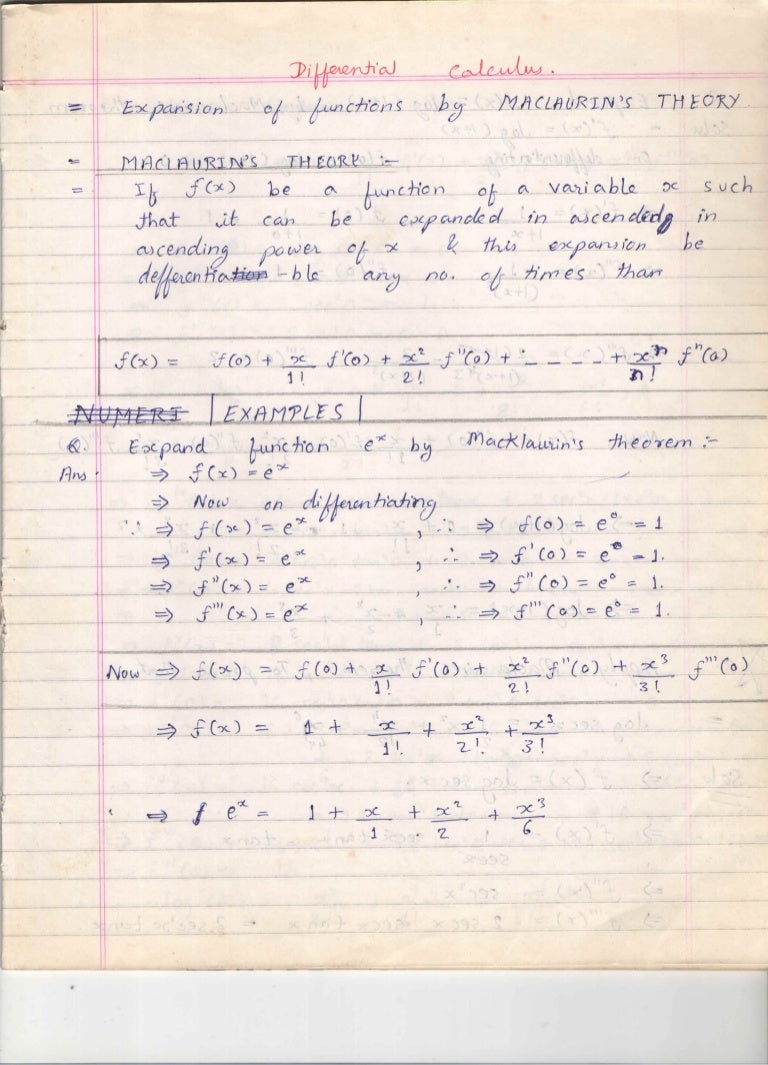 Differential Calculus.
= Expansion of functions by MACLAURIN'S THEORY
= MACLAURIN'S THEORY :-
= If f(x) be a function of a variable x such
that it can be expanded in ascendedg in
ascending power of x & this expansion be
defferentiation -ble any no. of times than
f(x) = f(0) + x/1! f'(0) + x²/2! f''(0) + - - - - + xⁿ/n! fⁿ(0)
NUMERI | EXAMPLES |
Q. Expand function eˣ by Macklaurin's theorem :-
Ans. ⇒ f(x) = eˣ
⇒ Now on differentiating
∵ ⇒ f(x) = eˣ , ∴ ⇒ f(0) = e⁰ = 1
⇒ f'(x) = eˣ , ∴ ⇒ f'(0) = e⁰ = 1.
⇒ f''(x) = eˣ , ∴ ⇒ f''(0) = e⁰ = 1.
⇒ f'''(x) = eˣ , ∴ ⇒ f'''(0) = e⁰ = 1.
Now ⇒ f(x) = f(0) + x/1! f'(0) + x²/2! f''(0) + x³/3! f'''(0)
⇒ f(x) = 1 + x/1! + x²/2! + x³/3!
⇒ f eˣ = 1 + x/1 + x²/2 + x³/6